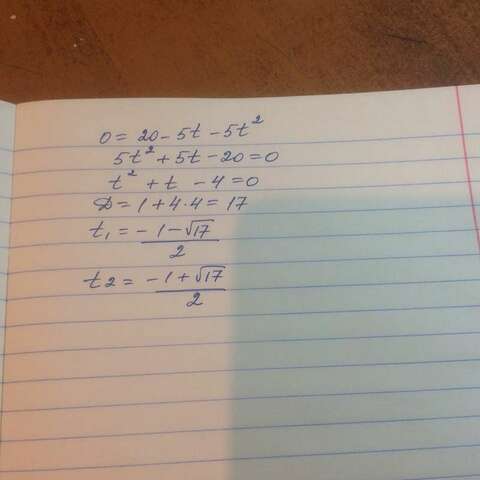 0 = 20 - 5t - 5t²
5t² + 5t - 20 = 0
t² + t - 4 = 0
D = 1 + 4·4 = 17
t₁ = (-1-√17)/2
t2 = (-1+√17)/2